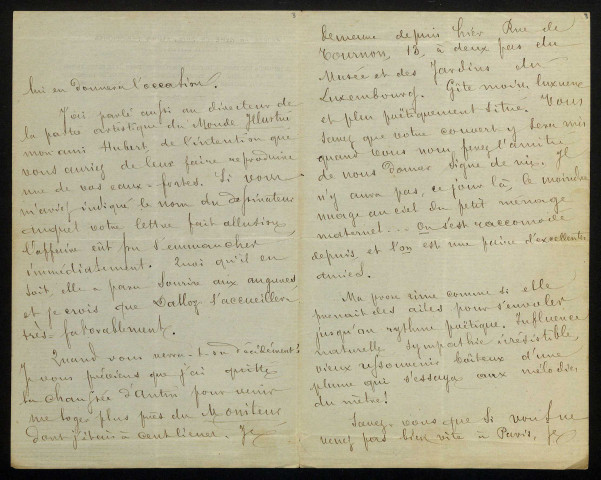 lui en donnera l'occasion.
J'ai parlé aussi au directeur de
la partie artistique du Monde Illustré
mon ami Hubert de l'intention que
vous auriez de leur faire reproduire
une de vos eaux-fortes. Si vous
m'aviez indiqué le nom du dessinateur
auquel votre lettre fait allusion,
l'affaire eût pu s'emmancher
immédiatement. Quoi qu'il en
soit, elle a paru sourire aux
et je crois que Dalloz l'accueillera
très-favorablement.
Quand vous verra-t-on décidément?
Je vous préviens que j'ai quitté
la Chaussée d'Antin pour venir
me loger plus près du Moniteur
dont j'étais à cent lieues. Je
demeure depuis hier Rue de
Tournon, 13, à deux pas du
Musée et des Jardins du
Luxembourg. Gîte moins luxueux
et plus poëtiquement situé. Vous
savez que votre couvert y sera mis
quand vous nous ferez l'amitié
de nous donner signe de vie. Il
n'y aura pas, ce jour là, le moindre
nuage au ciel du petit ménage
maternel... On s'est raccomodé
depuis et l'on est une paire d'excellentes
amies.
Ma prose rime comme si elle
prenait des ailes pour s'envoler
jusqu'au rythme poëtique. Influence
naturelle, sympathie irrésistible,
vieux ressouvenir boiteux d'une
plume qui s'essaya aux mélodies
du mètre!
Savez-vous que si vous ne
venez pas bien vite à Paris, je